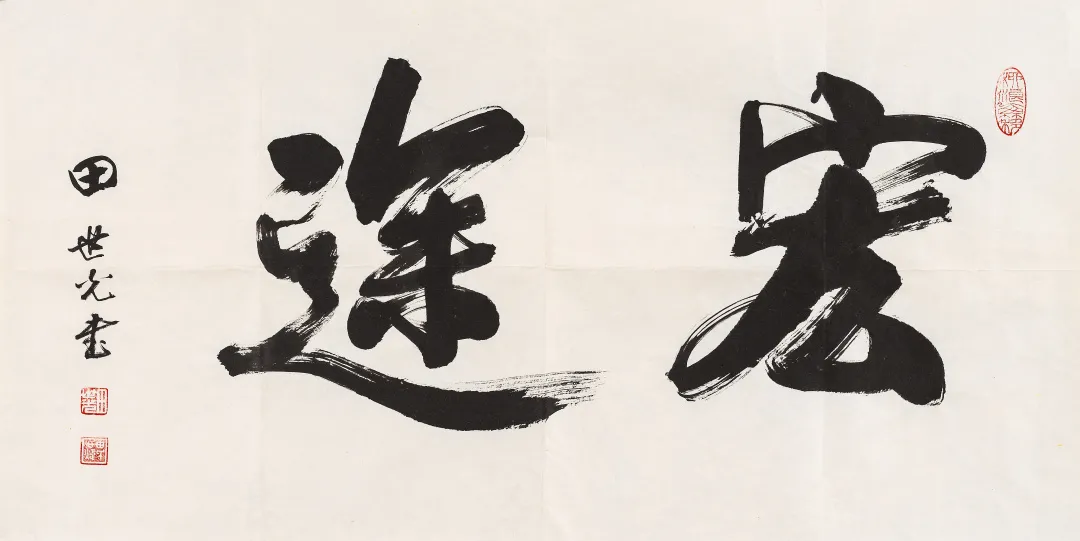 宏途
田世光书